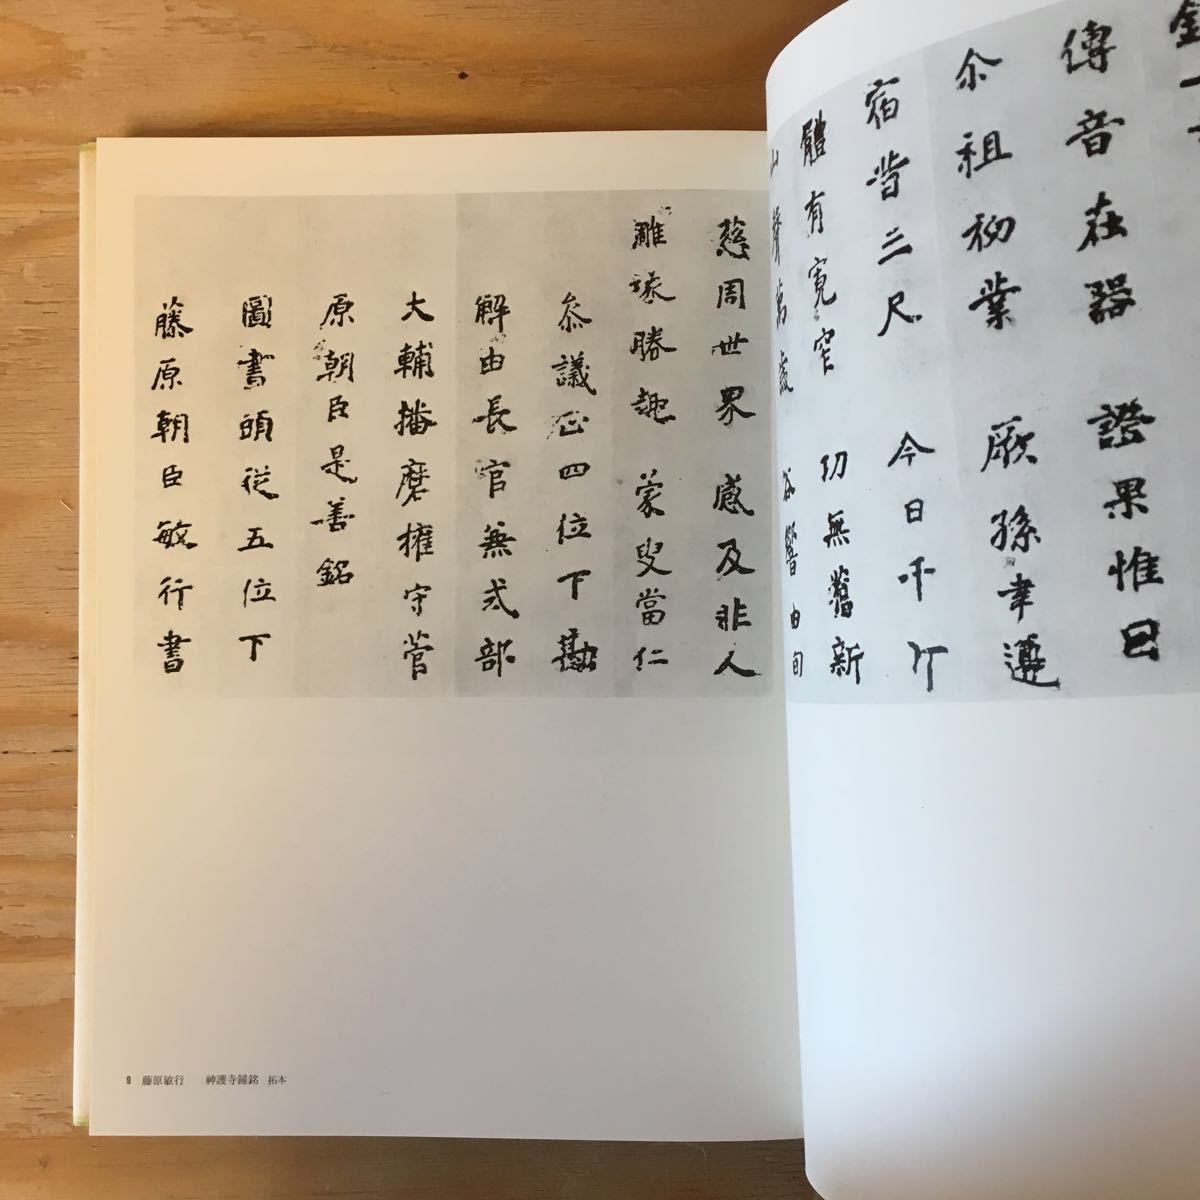 傳音在器 證果惟因
尒祖初業 厥孫聿遵
宿昔三尺 今日千斤
體有寛窄 功無舊新
山聲萬歳 谷響由旬
慈周世界 感及非人
雖緣勝趣 蒙叟當仁
參議正四位下勘
解由長官兼式部
大輔播磨權守菅
原朝臣是善銘
圖書頭從五位下
藤原朝臣敏行書
9 藤原敏行 神護寺鐘銘 拓本